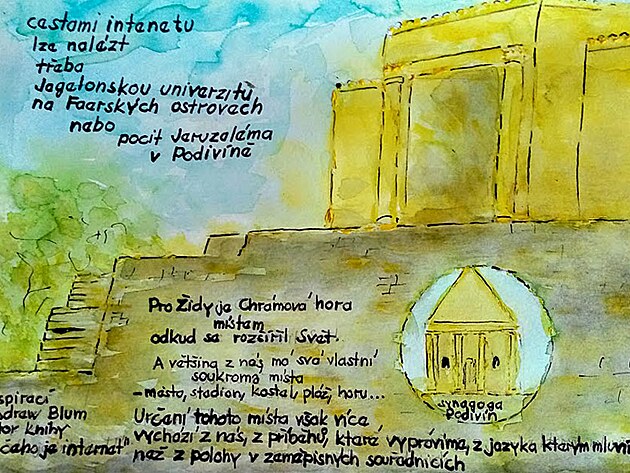 cestami intenetu
lze nalézt
třeba
Jagelonskou univerzitu
na Faerských ostrovech
nebo
pocit Jeruzaléma
v Podivíně
Pro Židy je Chrámová hora
místem
odkud se rozšířil Svět.
A většina z nás má svá vlastní
soukromá místa
- město, stadion, kostel, pláž, horu...
Určení tohoto místa však více
vychází z nás, z příběhů, které vyprávíme, z jazyka kterým mluví
než z polohy v zeměpisných souřadnicích
synagoga
Podivín
spirací
ndrew Blum
tor knihy
čeho je internet"